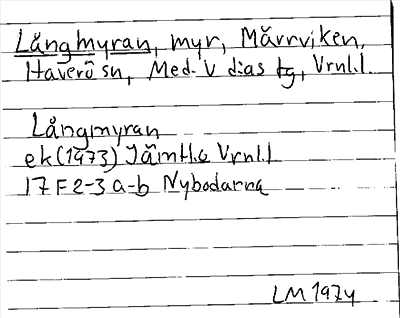 Långmyran, myr, Mårrviken,
Haverö sn, Med. V dias tg, Vrnl.l
Långmyran
ek (1973) Jämtl.o Vrnl.l
17 F 2-3 a-b Nybodarna
LM 1974